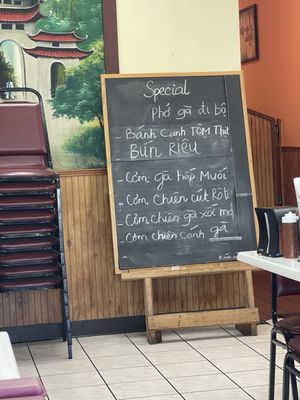 Special
Phở gà đi bộ
- Bánh Canh TÔM Thịt
BÚN RIÊU
- Cơm gà hấp Muối
- Cơm Chiên cút Rôti
- Cơm chiên gà xối mở
- Cơm chiên Cánh gà